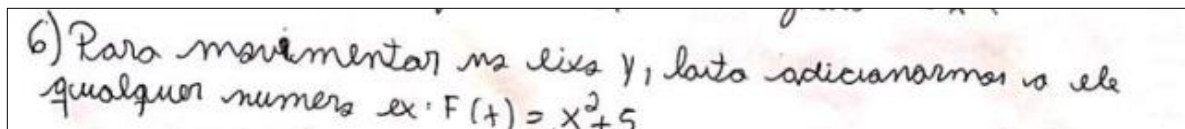 6) Para movimentar no eixo y, basta adicionarmos a ele
qualquer numero ex: F(x) = x²+5